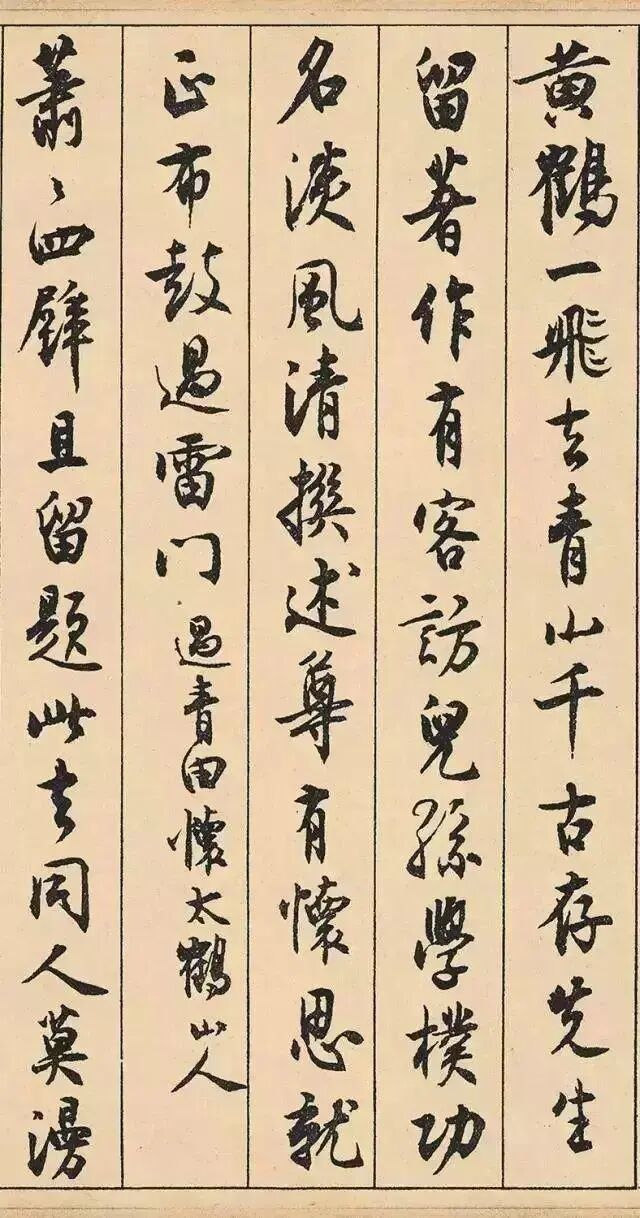 黄鶴一飛去青山千古存先生
留著作有客訪兒孫學樸功
名淡風清撰述尊有懷思就
正布鼓過雷门過青田懷太鶴山人
蕭〻四壁且留題此去同人莫漫